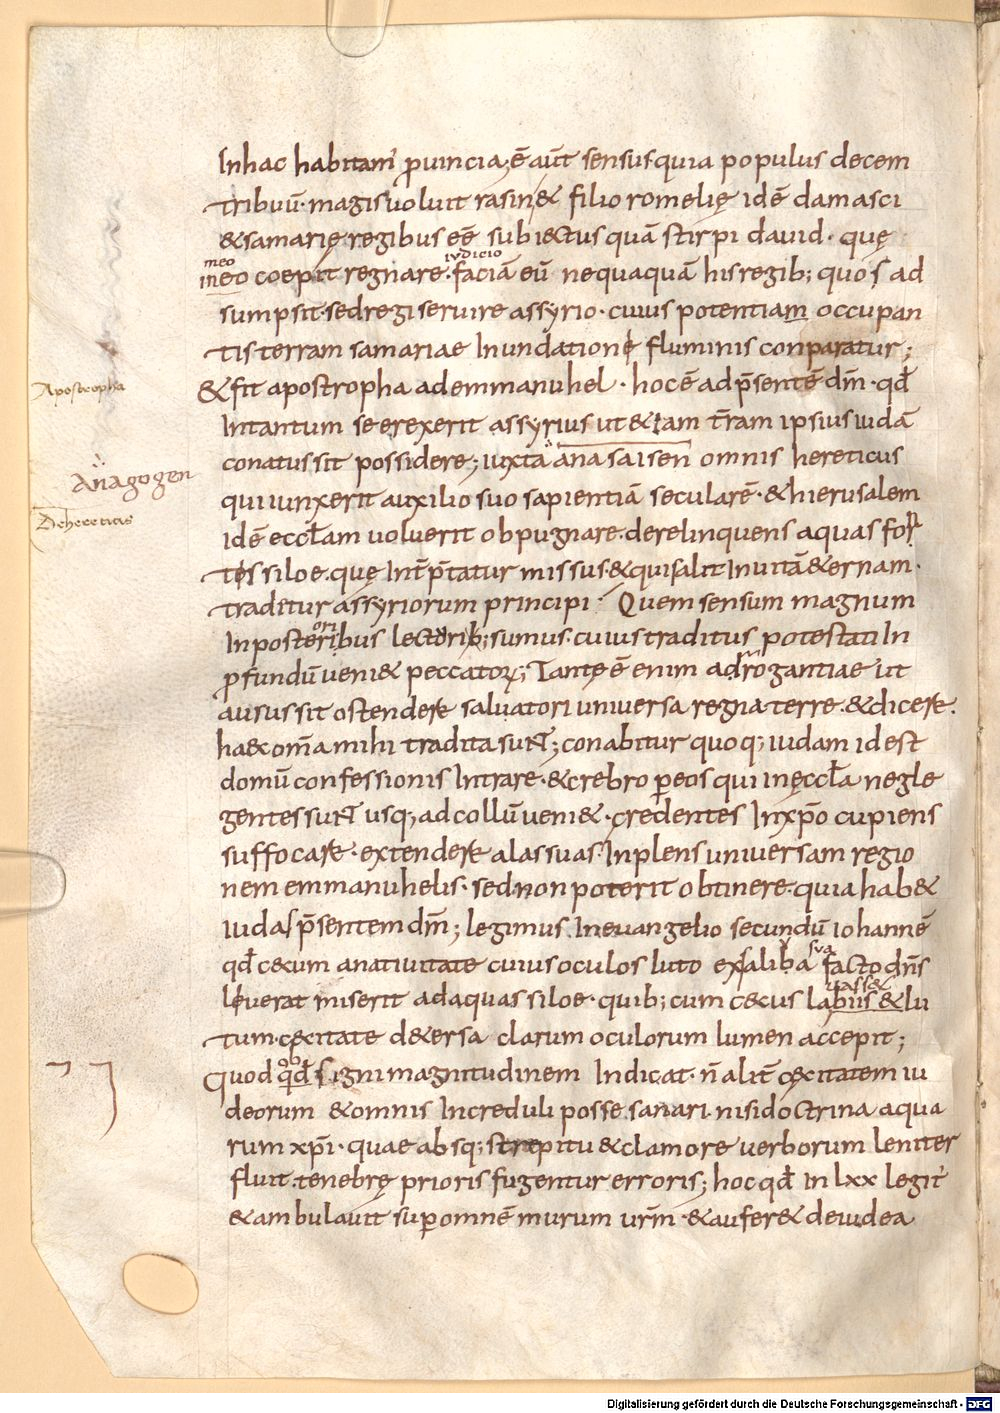 Inhac habitant ꝓuincia; ē aūt sensus quia populus decem
tribuū· magis uoluit rasin & filio romelię idē damasci
& samarię regibus eē subiectus quā stirpi dauid· quę
meo iudicio
meo coepit regnare· faciā eū nequaquā his regib; quos ad
sumpsit· sed regi seruire assyrio· cuius potentiam occupan
tis terram samariae Inundatione fluminis conparatur;
Apostropha
& fit apostropha ad emmanuhel· hoc ē ad p̄sentē dm̄· qđ
Intantum se erexerit assyrius ut &iam t̄ram ipsius iudā
Anagogen
conatus sit possidere; iuxta anasaisen omnis hereticus
qui iunxerit auxilio suo sapientiā secularē· & hierusalem
De hereticis
idē eccłam uoluerit obpugnare· derelinquens aquas for
tes siloe· quę Int̄p̄tatur missus· & qui salit In uitā &ernam·
traditur assyriorum principi· Quem sensum magnum
ori
In posteribus lectorib; sumus· cuius traditus potestati In
ꝓfundū ueni& peccatoꝝ; Tantę ē enim adrogantiae ut
ausus sit ostendere saluatori uniuersa regna terre· & dicere·
haec om̄a mihi tradita sunt; conabitur quoq; iudam id est
domū confessionis Intrare· & crebro ꝑ eos qui in ęccła negle
gentes sunt usq; ad collū ueni&· credentes In xp̄o cupiens
suffocare· extendere alas suas· Inplens uniuersam regio
nem emmanuhelis· sed non poterit obtinere· quia hab&
iudas p̄sentem dm̄; legimus In euangelio secundū iohannē
sua
qđ cecum a natiuitate cuius oculos luto ex saliba facto dn̄s
uass&
leuerat miserit ad aquas siloe· quib; cum cecus labiis & lu
tum· cecitate d&ersa clarum oculorum lumen accepit;
Quod qđ signi magnitudinem Indicat· n̄ alit̄ cęcitatem iu
deorum & omnis Increduli posse sanari· nisi doctrina aqua
rum xp̄i· quae absq; strepitu & clamore uerborum leniter
fluit· tenebrę prioris fugentur erroris; hoc qđ in lxx legit̄
& ambulauit sup omnē murum ur̄m· & aufer& de iudea